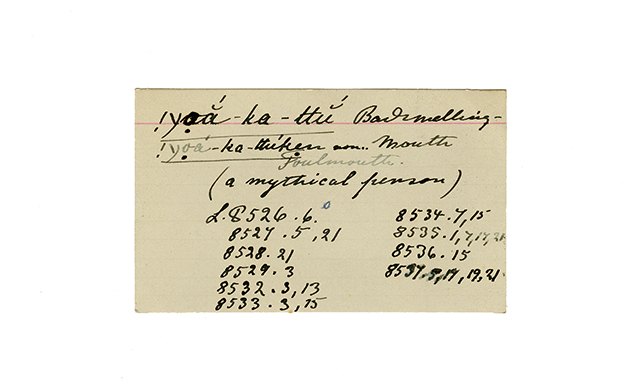 !yoá̆-ka-ttú Badsmelling-
!yoá-ka-ttú́ken nom. Mouth
Foulmouth.
(a mythical person)
L.8526.6. 8534.7,15
8527.5,21 8535.1,7,17,21
8528.21 8536.15
8529.3 8537.5,17,19,21
8532.3,13
8533.3,15